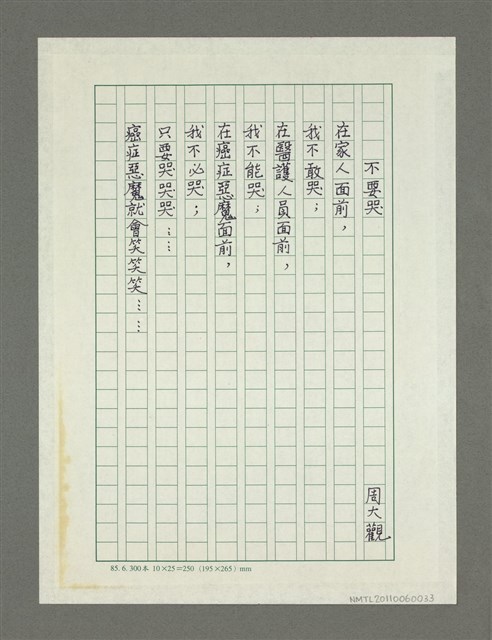 不要哭
周大觀
在家人面前，
我不敢哭；
在醫護人員面前，
我不能哭；
在癌症惡魔面前，
我不必哭；
只要哭哭哭……
癌症惡魔就會笑笑笑……
85. 6. 300本 10×25=250 (195×265) mm
NMTL20110060033